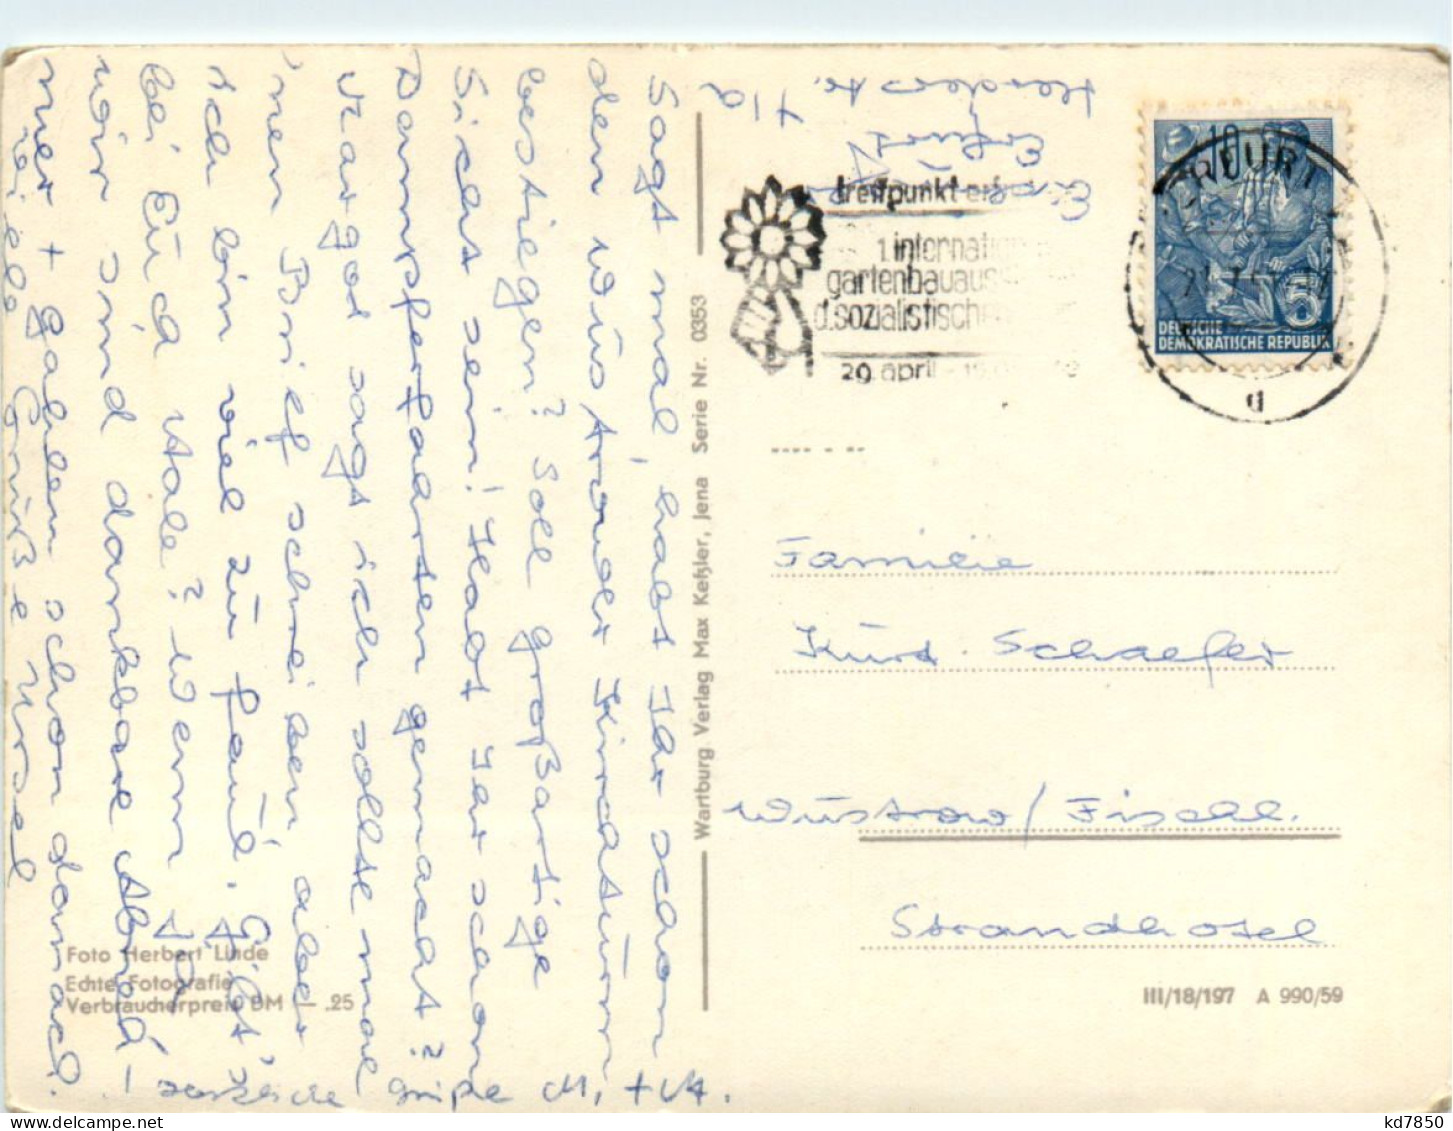 Sagt mal, habt Ihr schon
den Wustrower Kirchturm
bestiegen? Soll großartige
Sicht sein! Habt Ihr schon
Dampferfahrten gemacht?
Margot sagt ich sollte mal
'nen Brief schreiben aber
ich bin viel zu faul. Gibt's
bei Euch Aale? Wenn ja
wir sind dankbare Abneh-
mer + gabeln schon danach.
Viele Grüße Ursel
herzliche Grüße M. + M.
Erfurt
11a
treffpunkt erf
1. internation
gartenbauaus
d. sozialistischen
29. april -
ERFURT
d
10
5
DEUTSCHE
DEMOKRATISCHE REPUBLIK
Familie
Kurt Schaefer
Wustrow / Fischl.
Strandhotel
Wartburg Verlag Max Keßler, Jena Serie Nr. 0353
Foto Herbert Linde
Echte Fotografie
Verbraucherpreis DM —.25
III/18/197 A 990/59
kd7850